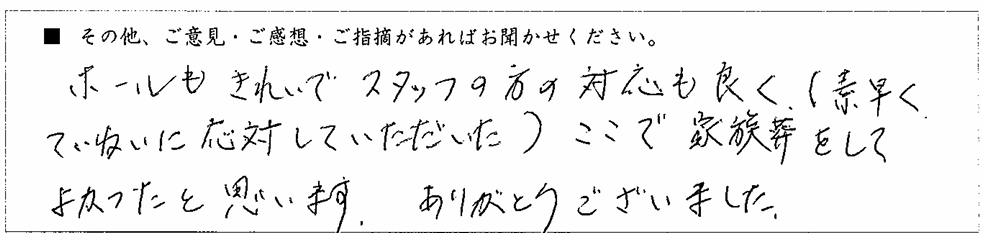 ■ その他、ご意見・ご感想・ご指摘があればお聞かせください。
ホールもきれいでスタッフの方の対応も良く、(素早く
ていねいに応対していただいた) ここで家族葬をして
よかったと思います。 ありがとうございました。